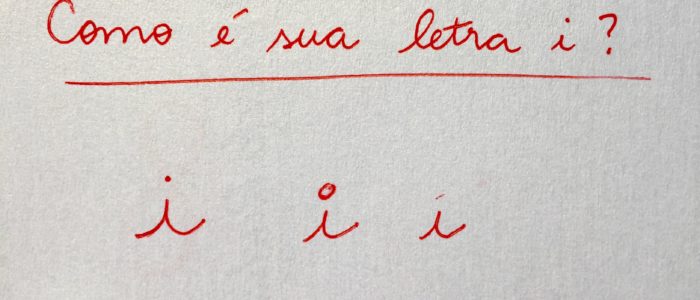 Como é sua letra i?
i i i